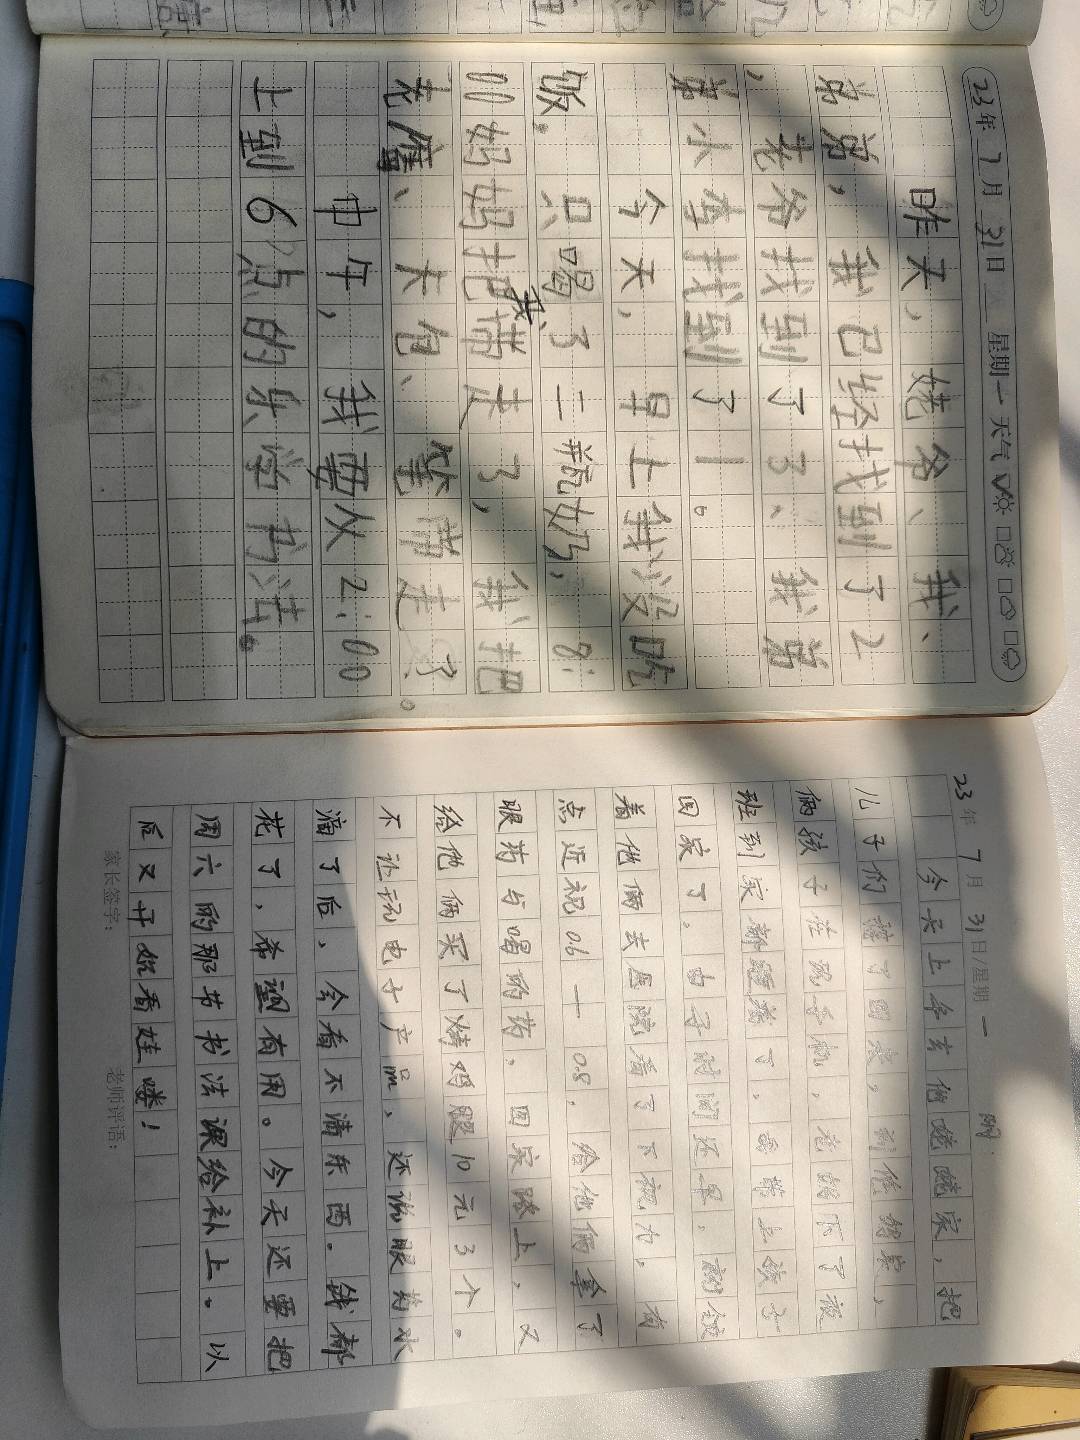 23年7月31日 星期一 天气
昨天，姥爷、我、
弟弟，我已经找到了2
，姥爷找到了3、我弟
弟小李找到了1。
今天，早上我没吃
饭。只喝了二瓶奶，8:
00妈妈把我、带走了，我把
大包、笔带走了。
中午，我要从2:00
上到6点的乐学书法。
23年7月31日/星期一 晴
今天上午去俩姥姥家，把
儿子们接了回来，
俩孩子在玩手机，
班到家都
回家了。由于时间还早，就领
着他俩去医院看了下视力，有
点近视0.6—0.8，给他俩拿了
眼药与喝的药，回家路上，又
给他俩买了烤鸡腿10元3个。
不让玩电子产品、还说眼药水
滴了后，会看不清东西。钱都
花了，希望有用。今天还要把
周六的那节书法课给补上。以
后又开始看娃喽！
家长签字： 老师评语：